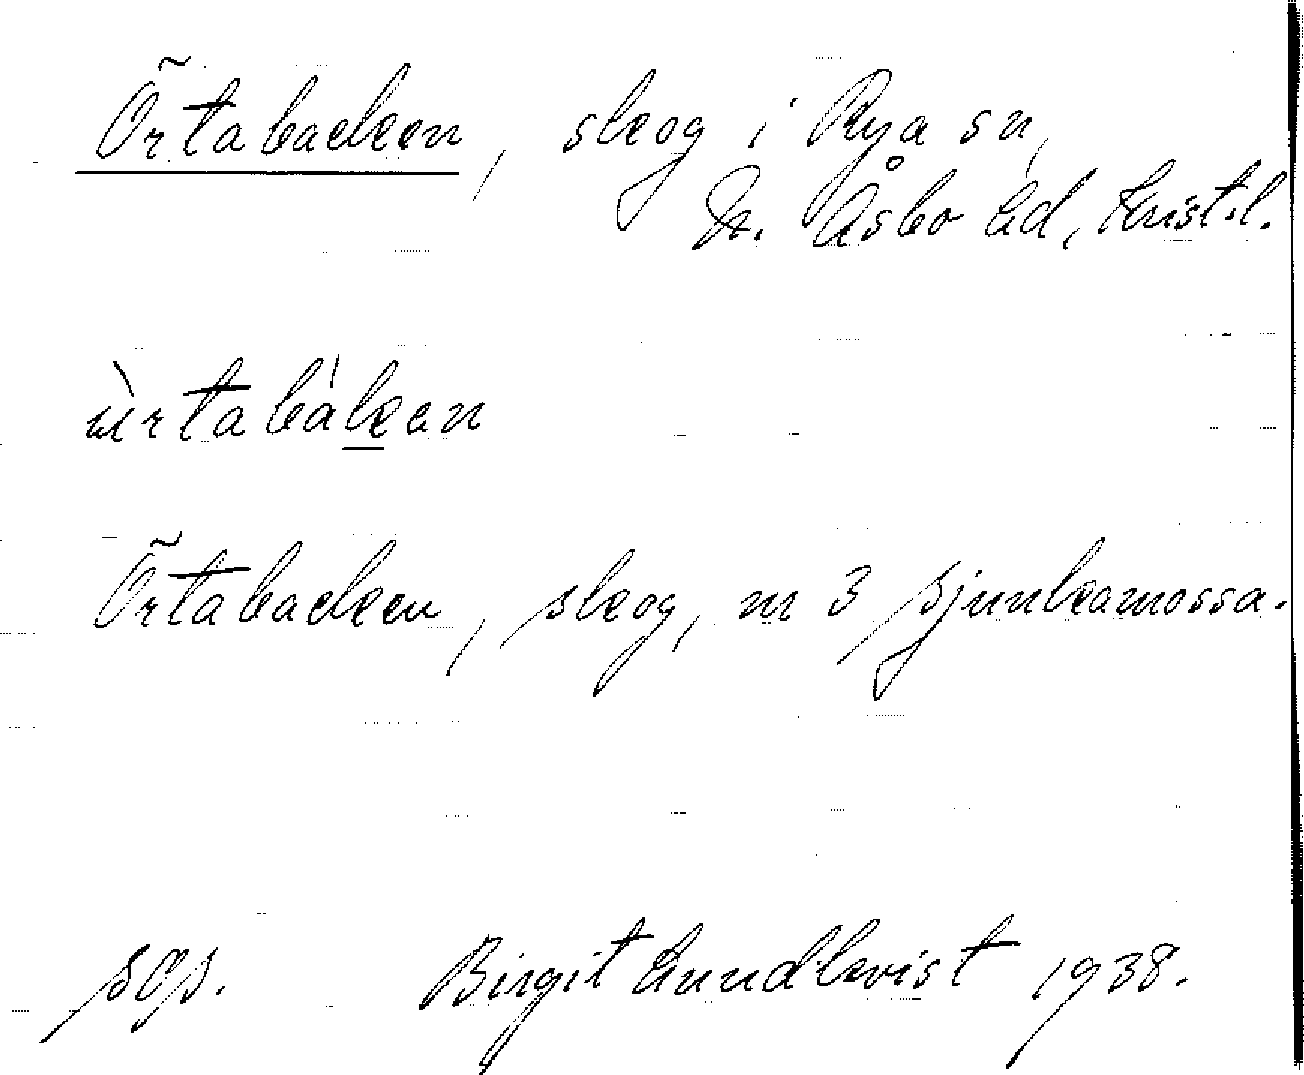 Örtabacken, skog i Rya sn,
N. Åsbo hd, Krist.l.
ùrtabáken
Örtabacken, skog, m 3 Sjunkamossa.
sgs. Birgit Lundkvist 1938.